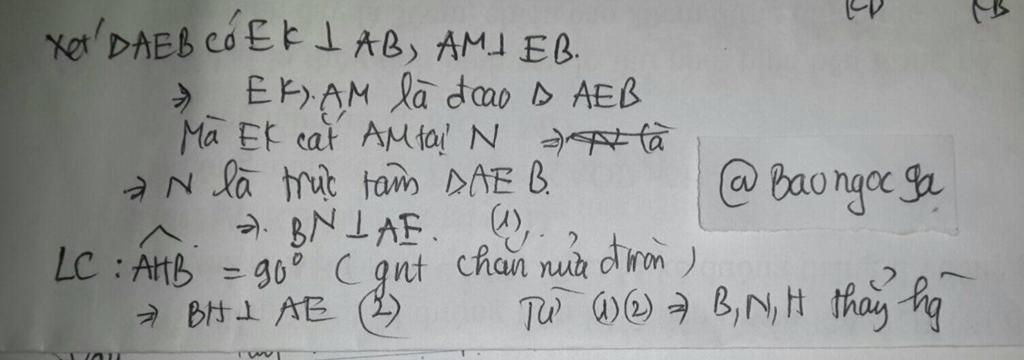 Xét ΔAEB có EK ⊥ AB, AM ⊥ EB.
⇒ EK, AM là đcao Δ AEB
Mà EK cắt AM tại N ⇒ N là
⇒ N là trực tâm ΔAEB.
@Baongocga
⇒ BN ⊥ AE. (1)
LC : AHB = 90° (gnt chắn nửa đtròn)
⇒ BH ⊥ AE (2) Từ (1)(2) ⇒ B, N, H thẳng hg